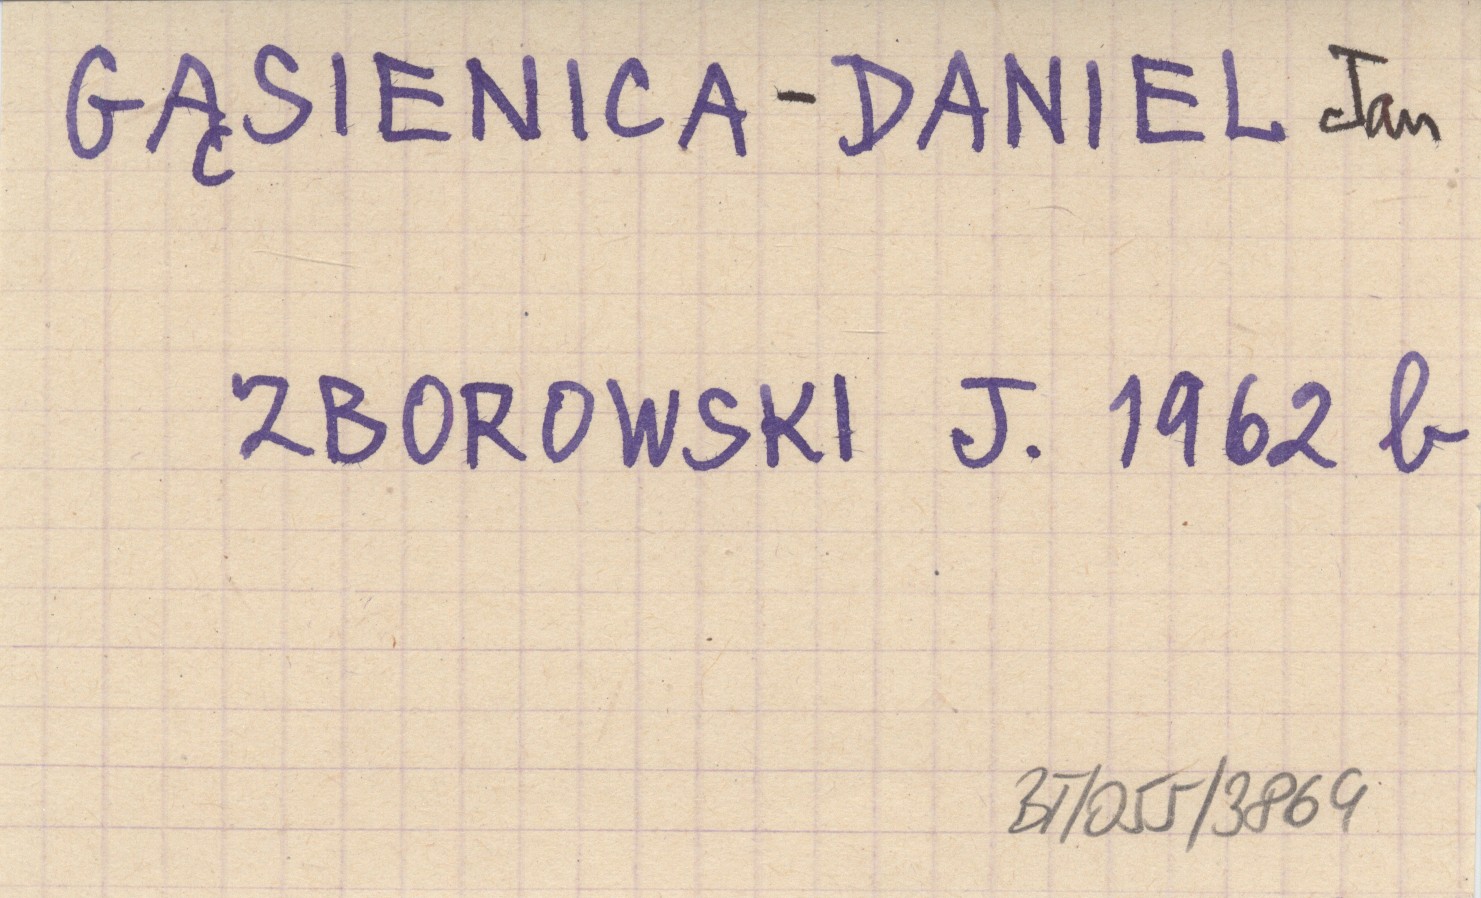 GĄSIENICA-DANIEL Jan
ZBOROWSKI J. 1962 b
BT/055/3869